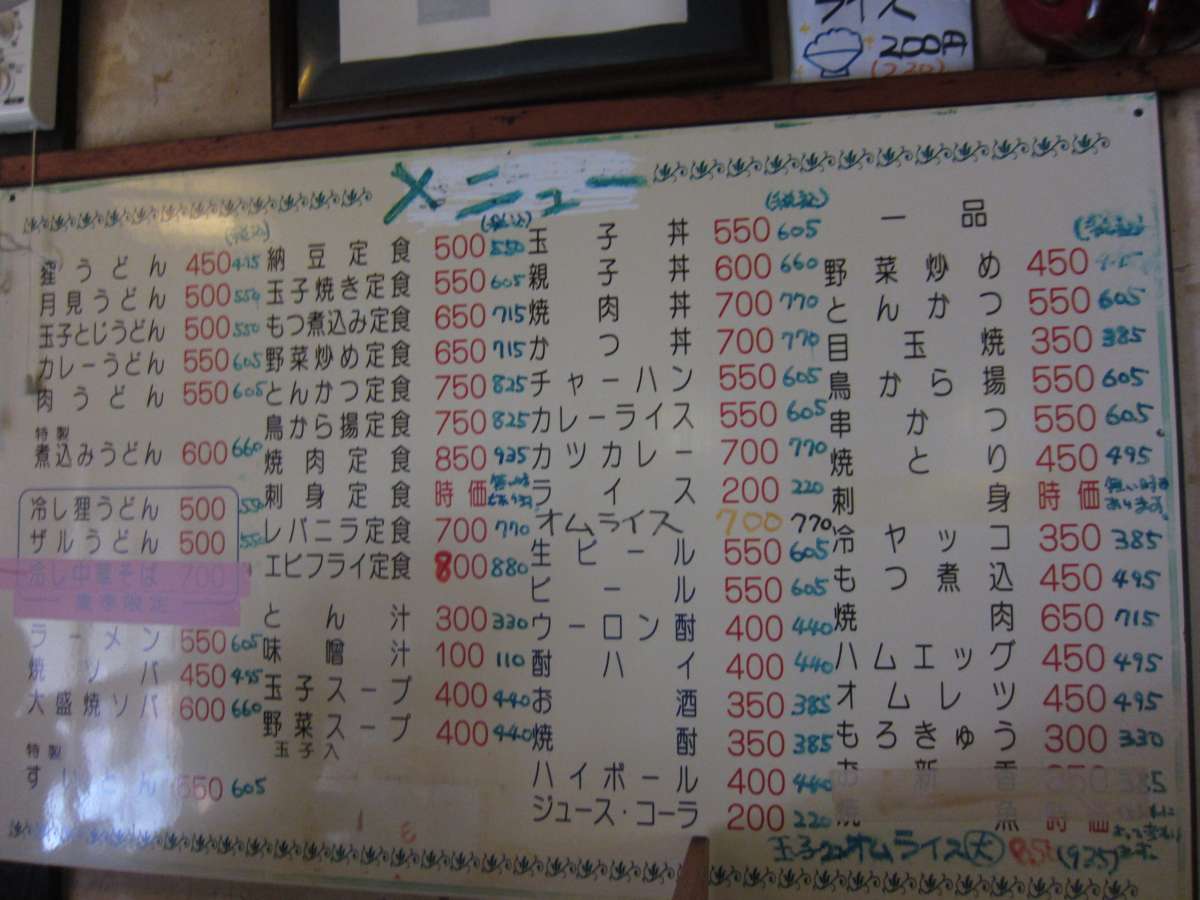 ライス
200円
(220)
メニュー
(税込)
狸うどん 450
月見うどん 500 550
玉子とじうどん 500 550
カレーうどん 550 605
肉うどん 550 605
特製
煮込みうどん 600 660
冷し狸うどん 500 550
ザルうどん 500 550
冷し中華そば 700
夏季限定
ラーメン 550 605
焼ソバ 450 495
大盛焼ソバ 600 660
特製
すいとん 550 605
(税込)
納豆定食 500 550
玉子焼き定食 550 605
もつ煮込み定食 650 715
野菜炒め定食 650 715
とんかつ定食 750 825
鳥から揚定食 750 825
焼肉定食 850 935
刺身定食 時価 無い時もあります。
レバニラ定食 700 770
エビフライ定食 800 880
とん汁 300 330
味噌汁 100 110
玉子スープ 400 440
野菜スープ 400 440
玉子入
(税込)
玉子丼 550 605
親子丼 600 660
焼肉丼 700 770
かつ丼 700 770
チャーハン 550 605
カレーライス 550 605
カツカレー 700 770
ライス 200 220
オムライス 700 770
生ビール 550 605
ビール 550 605
ウーロン酎 400 440
酎ハイ 400 440
お酒 350 385
焼酎 350 385
ハイボール 400 440
ジュース・コーラ 200 220
一品
(税込)
野菜炒め 450
とんかつ 550 605
目玉焼 350 385
鳥から揚 550 605
串かつ 550 605
焼とり 450 495
刺身 時価 無い時もあります。
冷ヤッコ 350 385
もつ煮込 450 495
焼肉 650 715
ハムエッグ 450 495
オムレツ 450 495
もろきゅう 300 330
お新香 350 385
焼魚 時価
オムライス 大 (935)